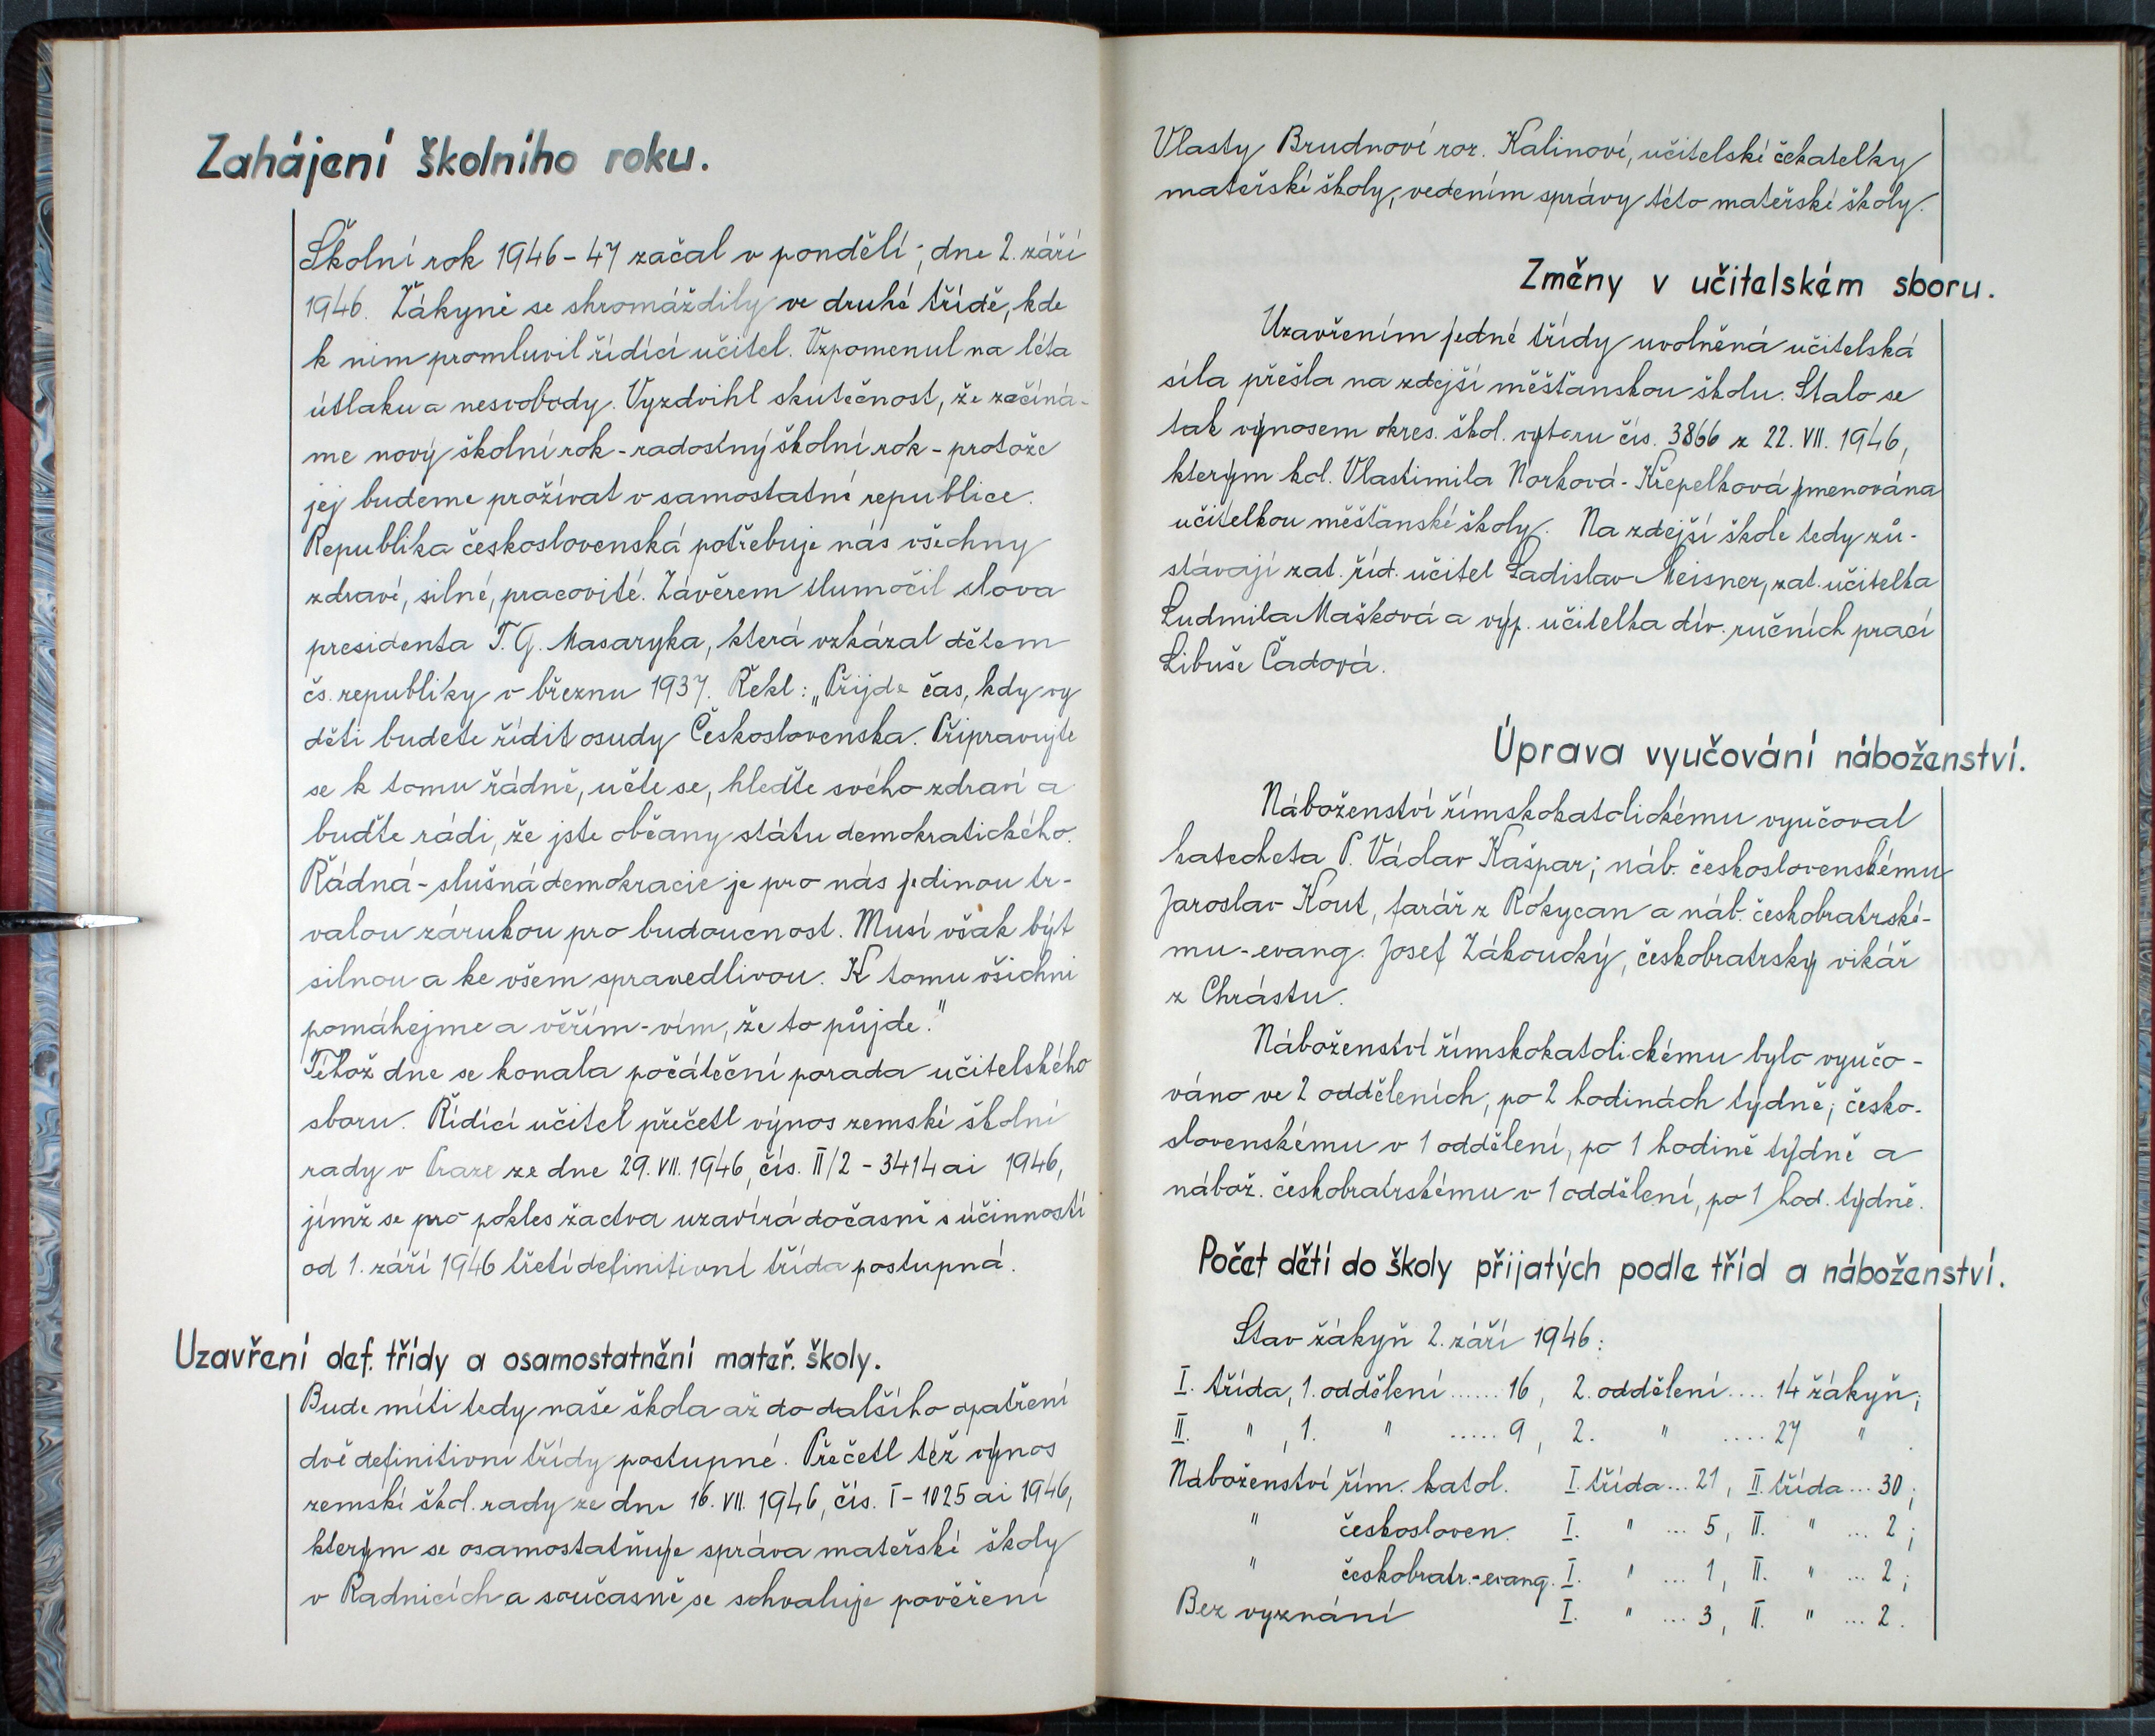 Zahájení školního roku.
Školní rok 1946-47 začal v pondělí, dne 2. září
1946. Žákyně se shromáždily ve druhé třídě, kde
k nim promluvil řídící učitel. Vzpomenul na léta
útlaku a nesvobody. Vyzdvihl skutečnost, že začíná-
me nový školní rok - radostný školní rok - protože
jej budeme prožívat v samostatné republice.
Republika československá potřebuje nás všechny
zdravé, silné, pracovité. Závěrem tlumočil slova
presidenta T. G. Masaryka, která vzkázal dětem
čs. republiky v březnu 1937. Řekl: „Přijde čas, kdy vy
děti budete řídit osudy Československa. Připravujte
se k tomu řádně, učte se, hleďte svého zdraví a
buďte rádi, že jste občany státu demokratického.
Řádná - slušná demokracie je pro nás jedinou tr-
valou zárukou pro budoucnost. Musí však být
silnou a ke všem spravedlivou. K tomu všichni
pomáhejme a věřím - vím, že to půjde."
Téhož dne se konala počáteční porada učitelského
sboru. Řídící učitel přečetl výnos zemské školní
rady v Praze ze dne 29. VII. 1946, čís. II/2 - 3414 ai 1946,
jímž se pro pokles žactva uzavírá dočasně s účinností
od 1. září 1946 třetí definitivní třída postupná.
Uzavření def. třídy a osamostatnění mateř. školy.
Bude míti tedy naše škola až do dalšího opatření
dvě definitivní třídy postupné. Přečetl též výnos
zemské škol. rady ze dne 16. VII. 1946, čís. I - 1025 ai 1946,
kterým se osamostatňuje správa mateřské školy
v Radnicích a současně se schvaluje pověření
Vlasty Brudnové roz. Kalinové, učitelské čekatelky
mateřské školy, vedením správy této mateřské školy.
Změny v učitelském sboru.
Uzavřením jedné třídy uvolněná učitelská
síla přešla na zdejší měšťanskou školu. Stalo se
tak výnosem okres. škol. výboru čís. 3866 z 22. VII. 1946,
kterým kol. Vlastimila Norková - Křepelková jmenována
učitelkou měšťanské školy. Na zdejší škole tedy zů-
stávají zat. říd. učitel Ladislav Meisner, zat. učitelka
Ludmila Mašková a výp. učitelka dív. ručních prací
Libuše Čadová.
Úprava vyučování náboženství.
Náboženství římskokatolickému vyučoval
katecheta P. Václav Kašpar; náb. československému
Jaroslav Kout, farář z Rokycan a náb. českobratrské-
mu - evang. Josef Zákoucký, českobratrský vikář
z Chrástu.
Náboženství římskokatolickému bylo vyučo-
váno ve 2 odděleních, po 2 hodinách týdně; česko-
slovenskému v 1 oddělení, po 1 hodině týdně a
nábož. českobratrskému v 1 oddělení, po 1 hod. týdně.
Počet dětí do školy přijatých podle tříd a náboženství.
Stav žákyň 2. září 1946:
I. třída, 1. oddělení ...... 16, 2. oddělení .... 14 žákyň;
II. " , 1. " ..... 9, 2. " .... 27 " .
Náboženství řím. katol. I. třída ... 21, II. třída ... 30;
" českosloven. I. " ... 5, II. " ... 2;
" českobratr.-evang. I. " ... 1, II. " ... 2;
Bez vyznání I. " ... 3, II. " ... 2.